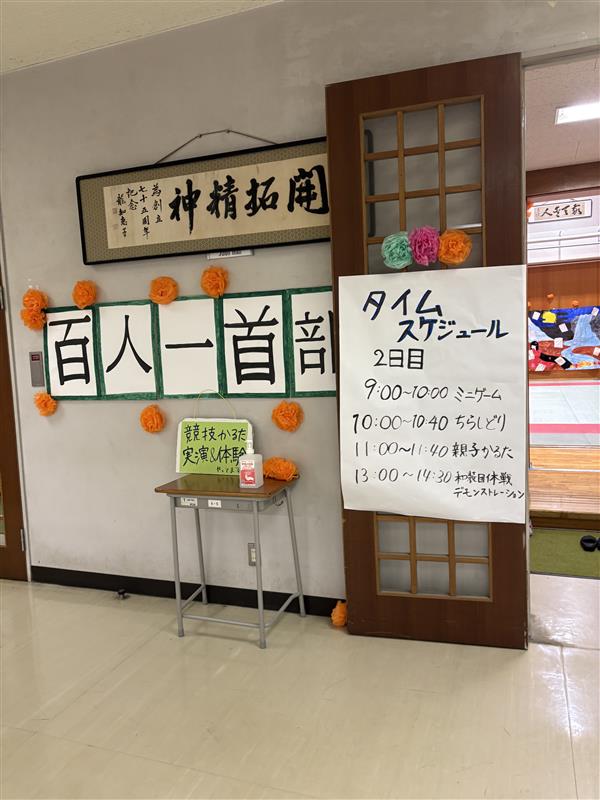 開拓精神
為創立
七十五周年
記念
百人一首部
競技かるた
実演&体験
やってます
タイム
スケジュール
2日目
9:00~10:00 ミニゲーム
10:00~10:40 ちらしどり
11:00~11:40 親子かるた
13:00~14:30 和装団体戦
デモンストレーション